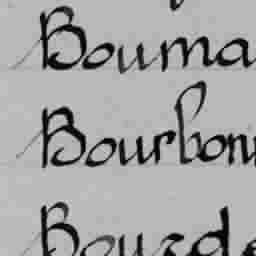 Bouma
Bourbon
Bourde